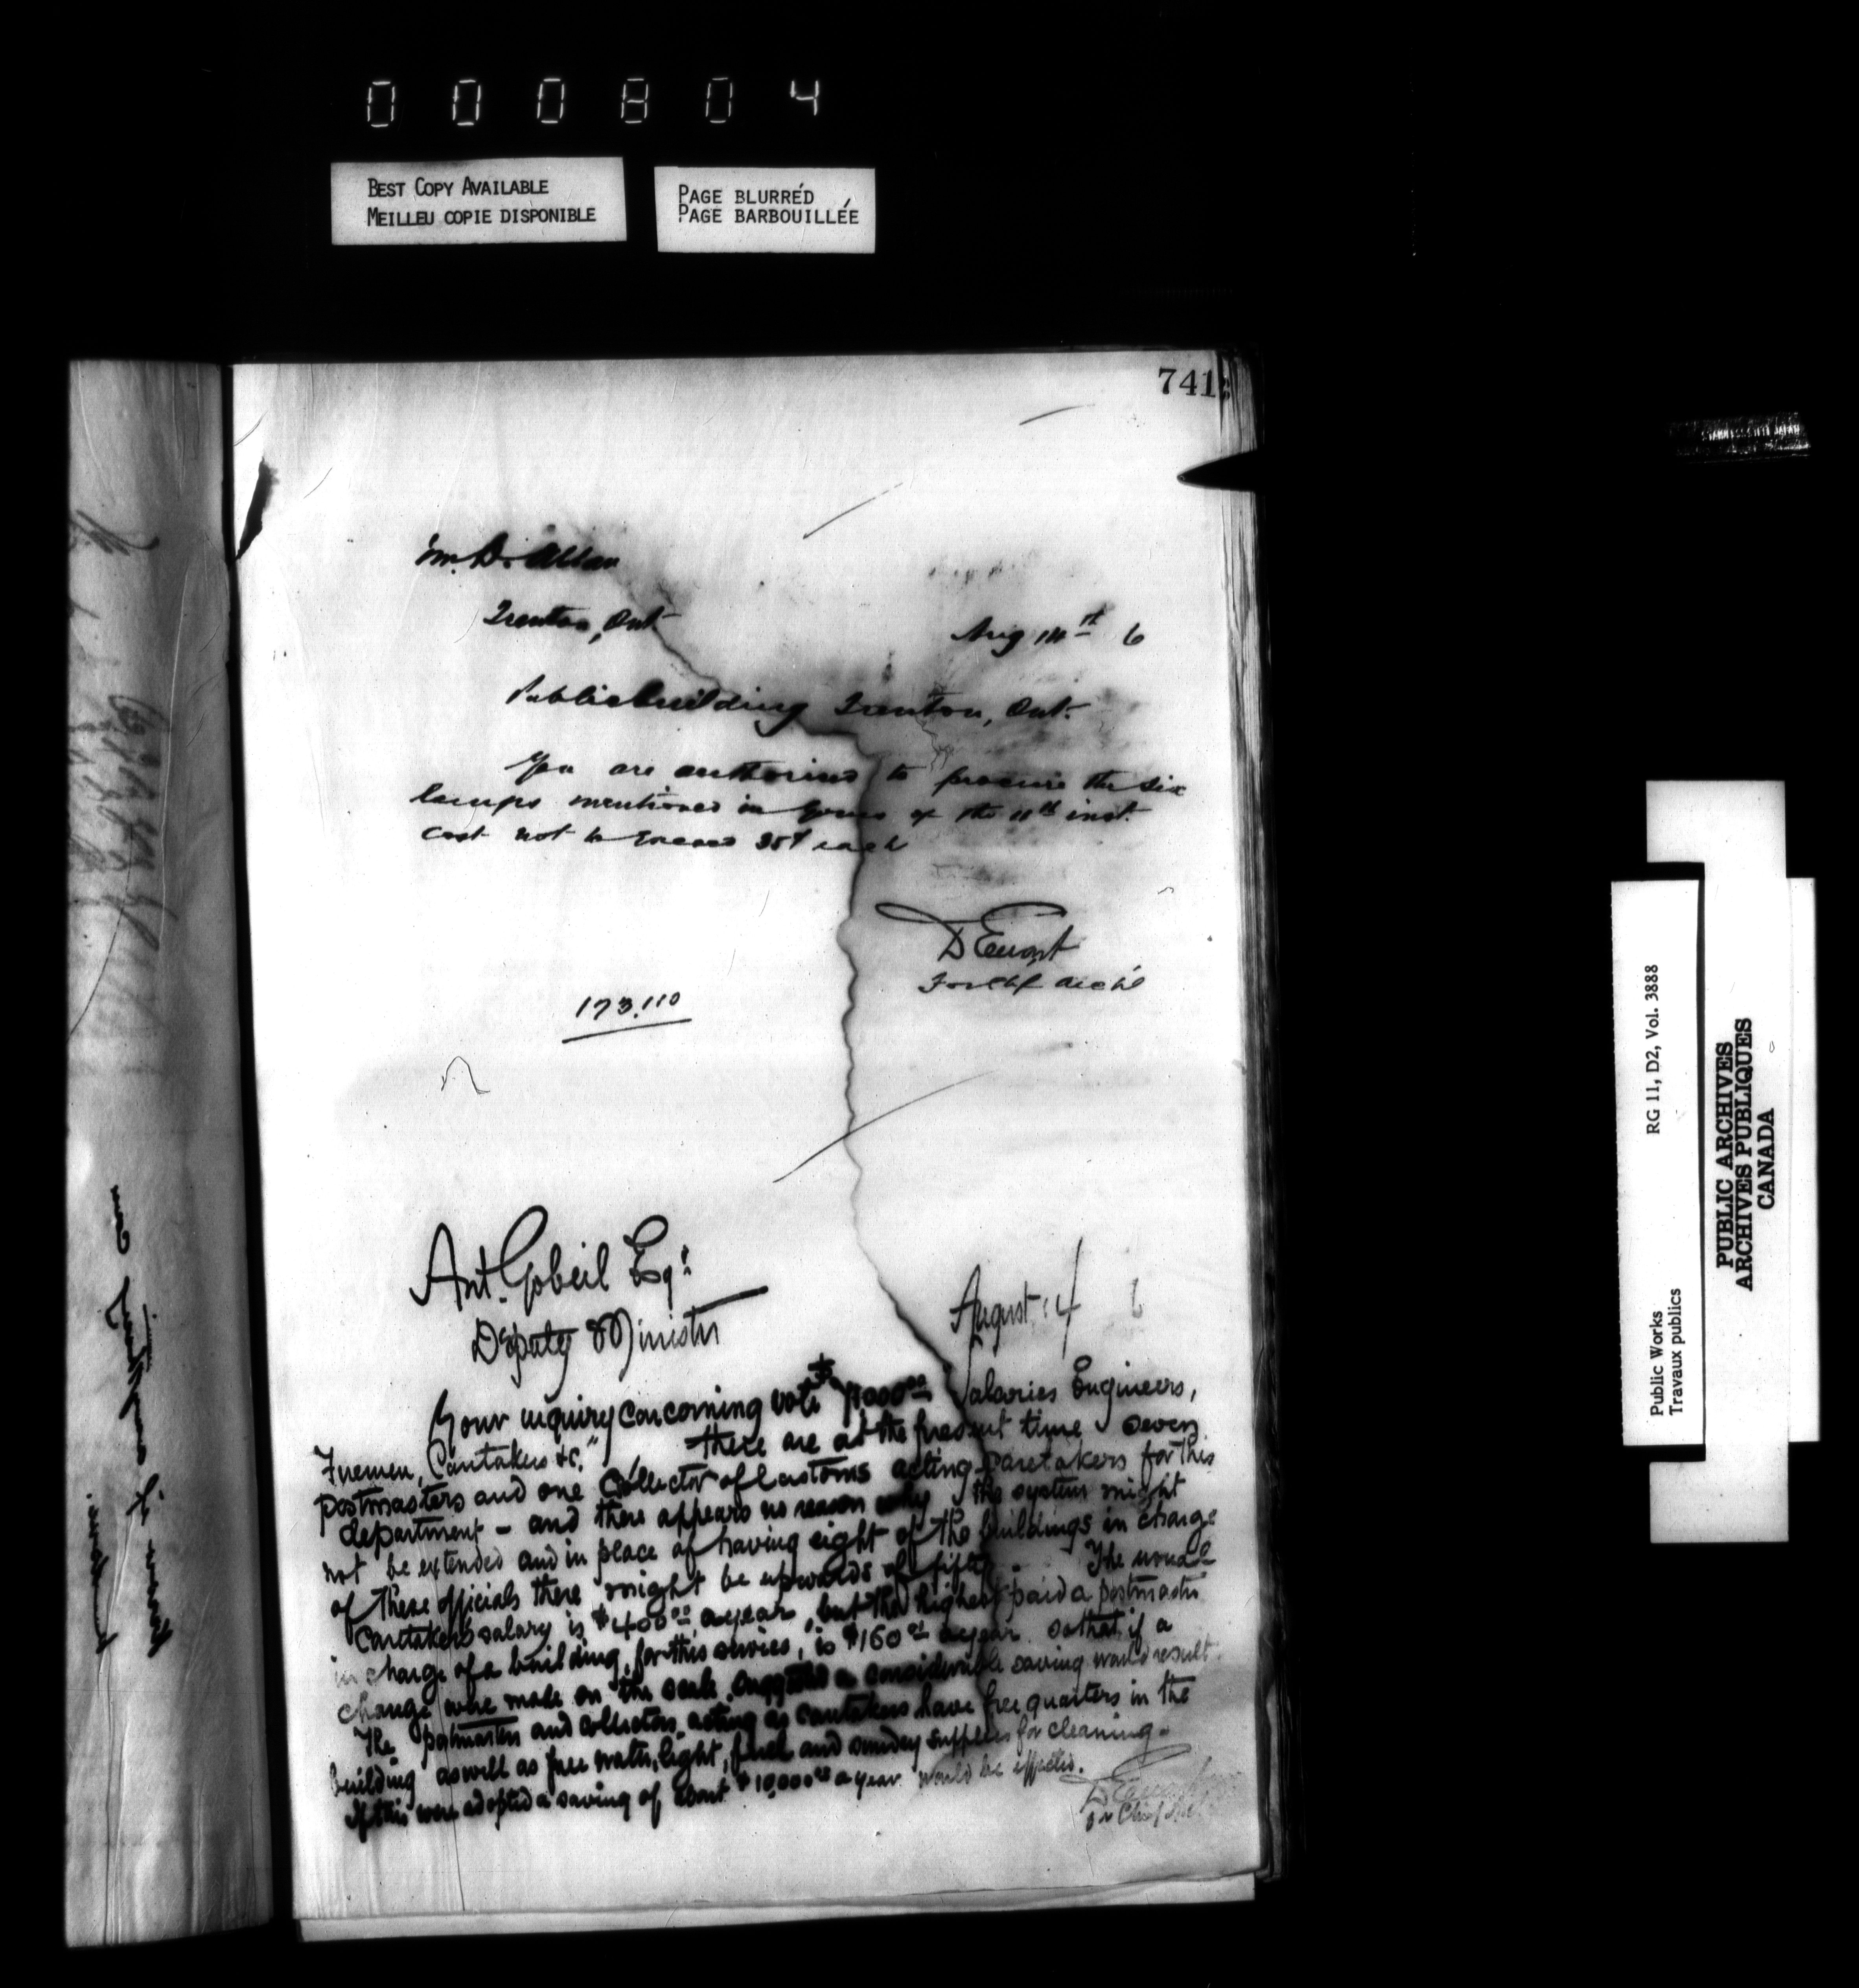 000804
BEST COPY AVAILABLE
MEILLEU COPIE DISPONIBLE
PAGE BLURRÉD
PAGE BARBOUILLÉE
741
Mr. D. Allan
Trenton, Ont
Aug 14th 6
Public building Trenton, Ont.
You are authorized to procure the six
lamps mentioned in yours of the 11th inst.
cost not to exceed 35¢ each
D Ewart
For Chf Archt
173.110
Ant. Gobeil Esqr
Deputy Minister
August 14 6
Your inquiry concerning vote Salaries Engineers,
Firemen, Caretakers &c." there are at the present time seven
postmasters and one Collector of Customs acting caretakers for this
department - and there appears no reason why this system might
not be extended and in place of having eight of the buildings in charge
of these officials there might be upwards of fifty. The usual
Caretakers salary is $400.00 a year, but the highest paid a postmaster
in charge of a building, for this service, is $160.00 a year so that if a
change were made on the scale suggested a considerable saving would result.
The postmasters and collectors acting as caretakers have free quarters in the
building as well as free water, light, fuel and sundry supplies for cleaning.
If this were adopted a saving of about $10,000.00 a year would be effected.
D Ewart
Chief Archt
Public Works
Travaux publics
RG 11, D2, Vol. 3888
PUBLIC ARCHIVES
ARCHIVES PUBLIQUES
CANADA